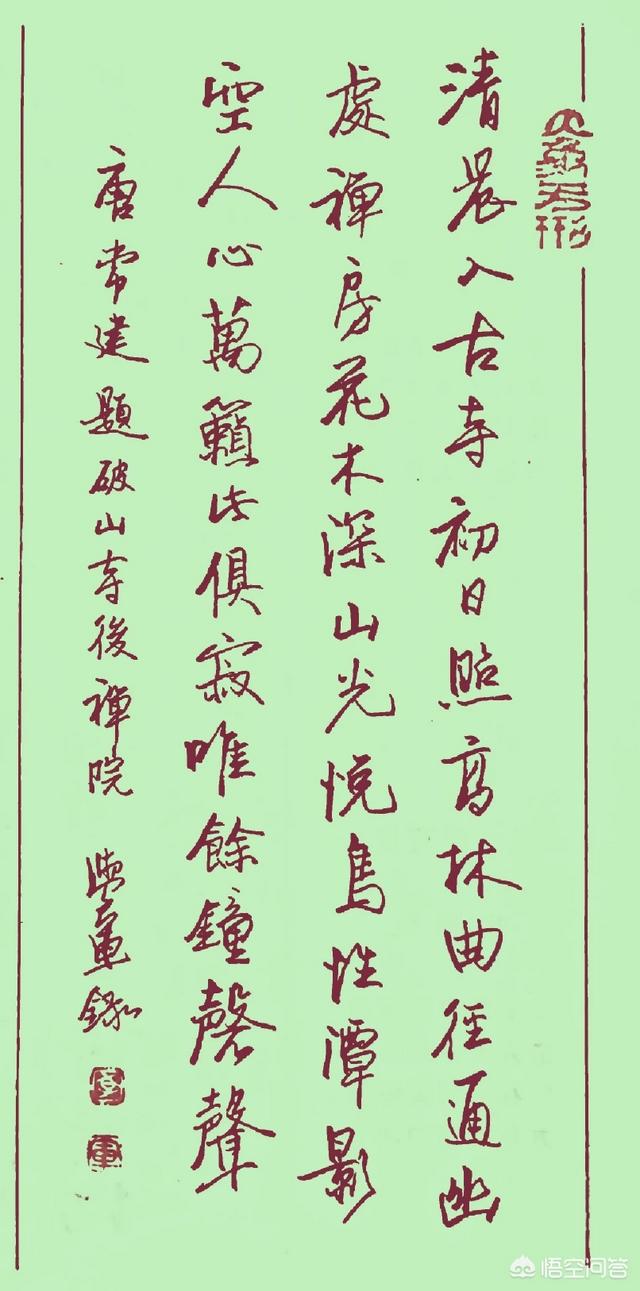 大象无形
清晨入古寺初日照高林曲径通幽
處禪房花木深山光悦鳥性潭影
空人心萬籟此俱寂唯餘鐘磬聲
唐常建題破山寺後禪院
悟空问答